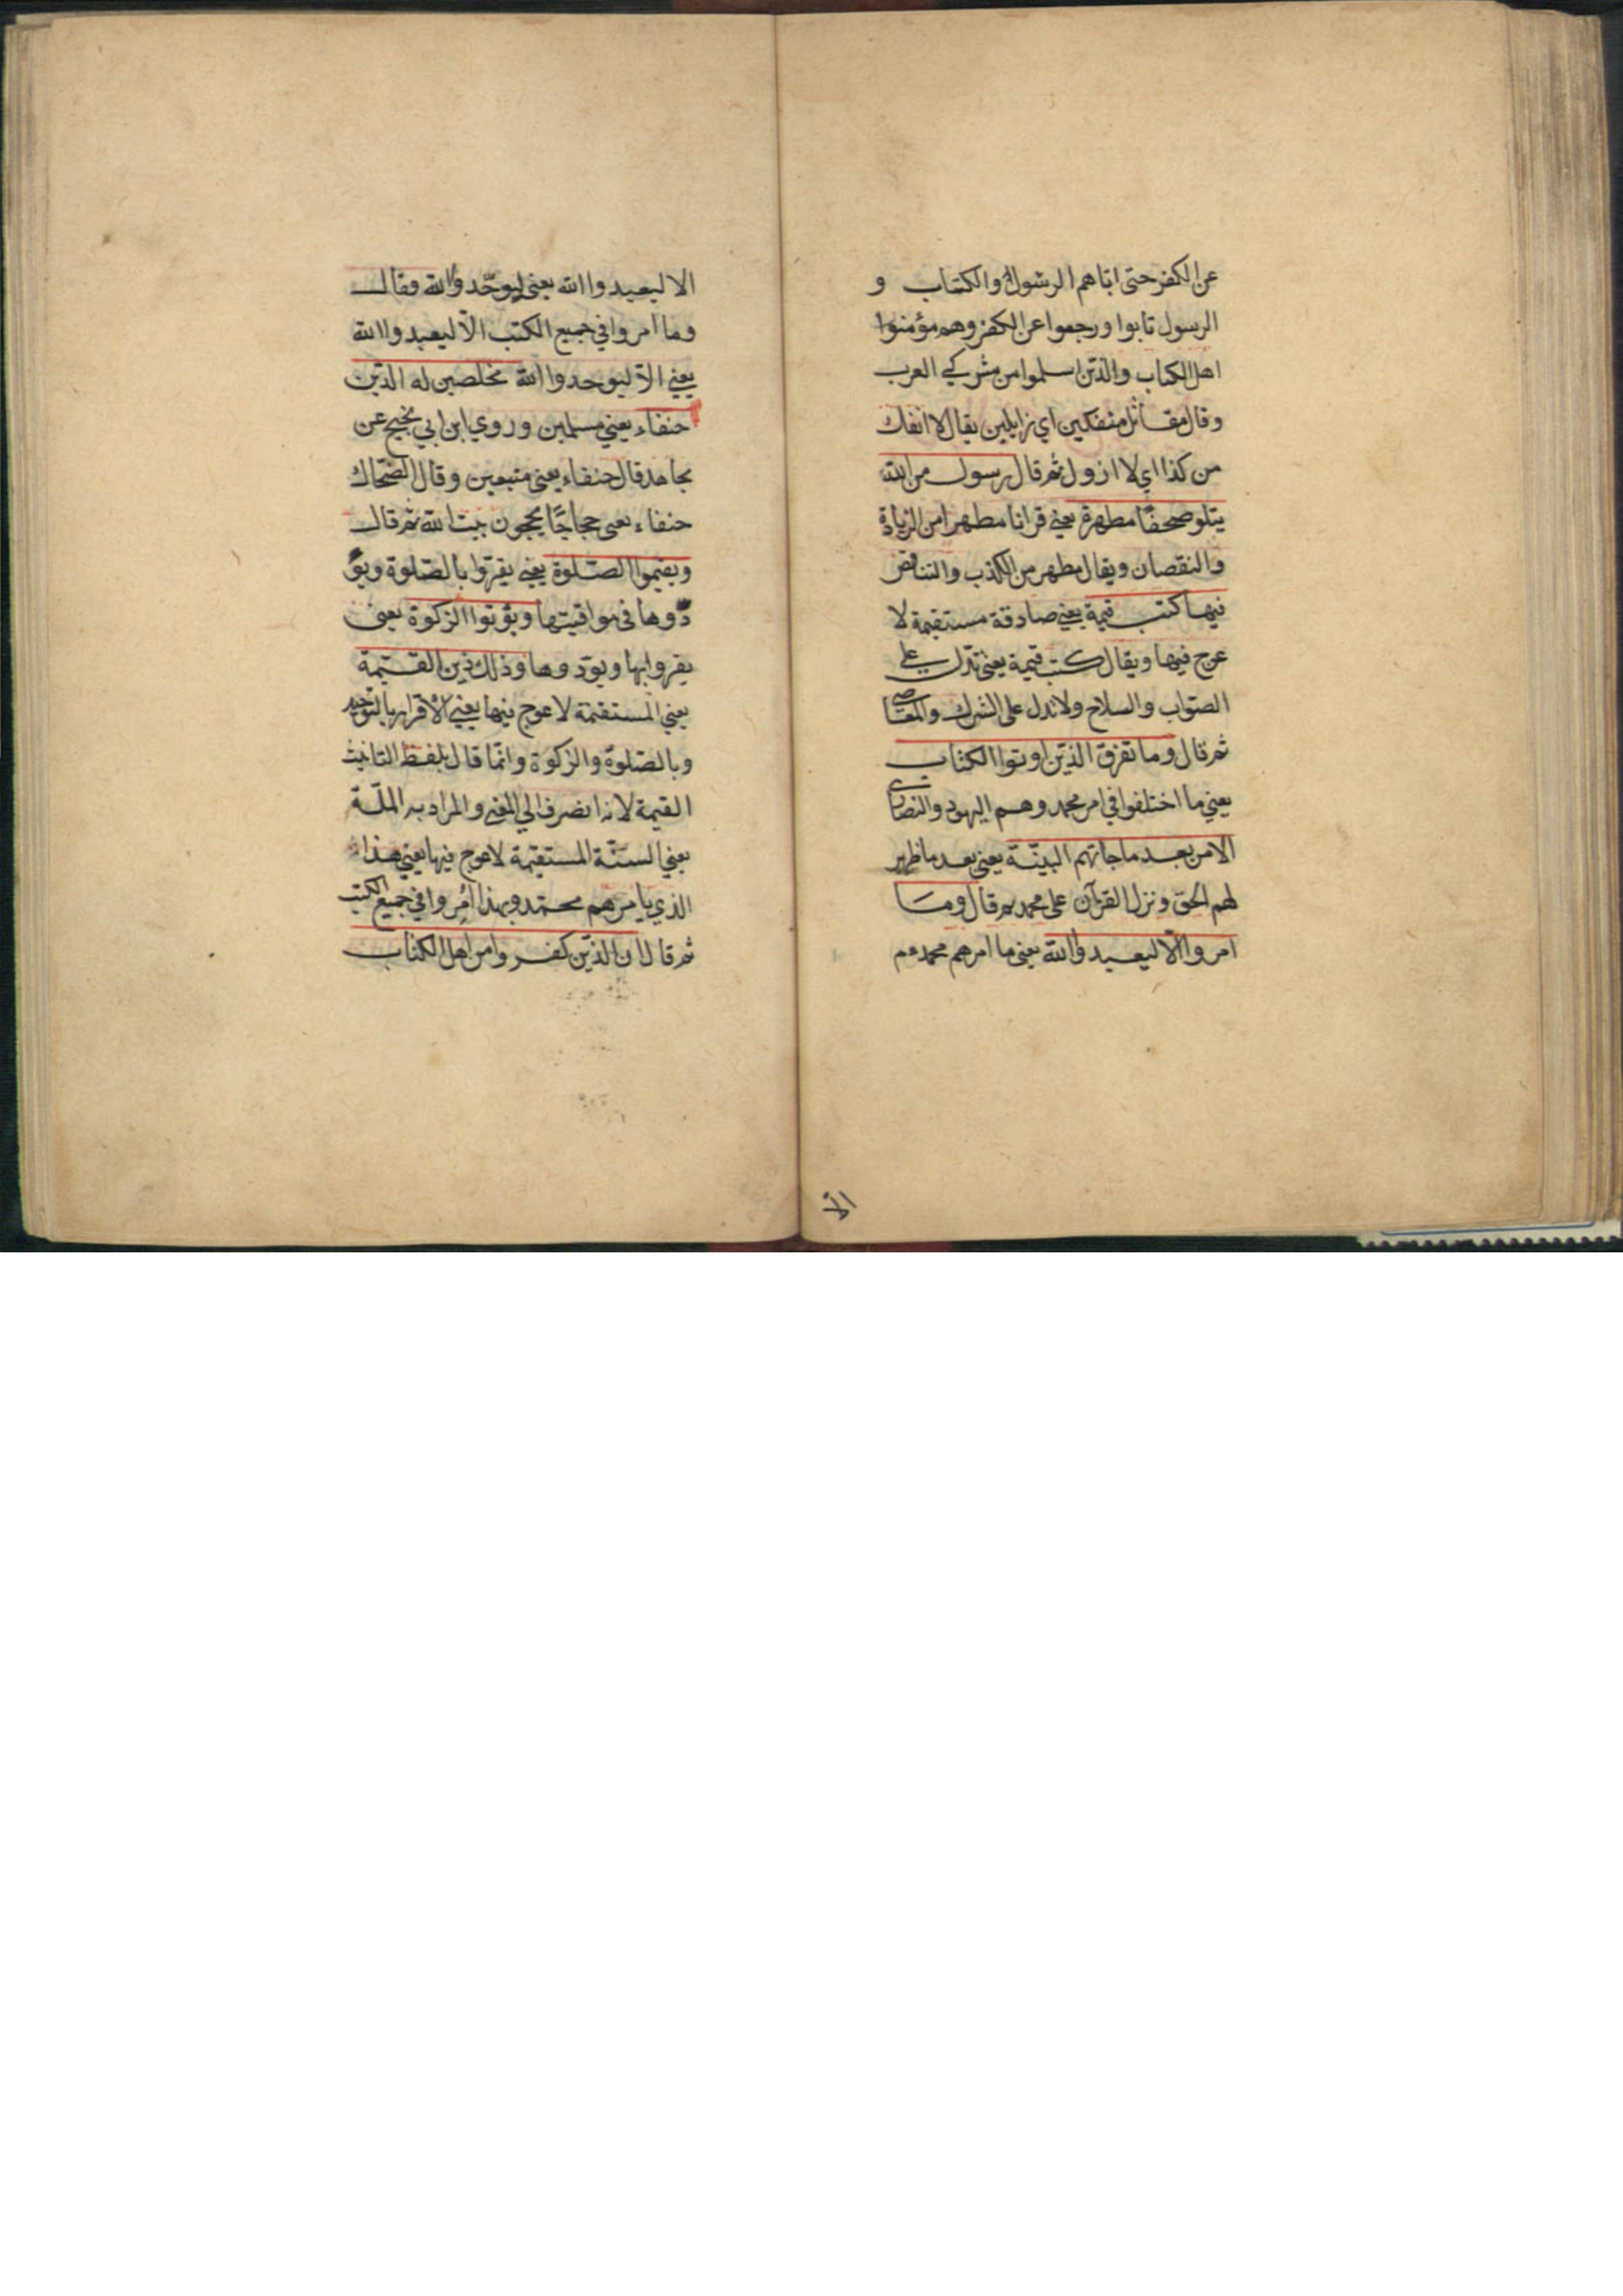 عن الكفر حتى اتاهم الرسول والكتاب و
الرسول تابوا ورجعوا عن الكفر وهم مؤمنوا
اهل الكتاب والذين اسلموا من مشركي العرب
وقال مقاتل منفكين اي زايلين يقال لا انفك
من كذا اي لا ازول ثم قال رسول من الله
يتلو صحفًا مطهرة يعني قرانا مطهرا من الزيادة
والنقصان ويقال مطهر من الكذب والتناقض
فيها كتب قيمة يعني صادقة مستقيمة لا
عوج فيها ويقال كتب قيمة يعني تدل على
الصواب والسلاح ولا تدل على الشرك والمعاصي
ثم قال وما تفرق الذين اوتوا الكتاب
يعني ما اختلفوا في امر محمد وهم اليهود والنصارى
الا من بعد ما جاتهم البينة يعني بعد ما ظهر
لهم الحق ونزل القرآن على محمد ثم قال وما
امروا الّا ليعبدوا الله يعني ما امرهم محمد عم
الا
الا ليعبدوا الله يعني ليوحّدوا الله وقال
وما امروا في جميع الكتب الّا ليعبدوا الله
يعني الّا ليوحدوا الله مخلصين له الدين
حنفاء يعني مسلمين وروي ابن ابي نجيح عن
مجاهد قال حنفاء يعني متبعين وقال الضحاك
حنفاء يعني حجاجًا يحجون بيت الله ثم قال
ويقيموا الصلوة يعني يقرّوا بالصّلوة ويؤ
دّوها في مواقيتها ويؤتوا الزكوة يعني
يقروا بها ويؤدوها وذلك دين القيمة
يعني المستقيمة لا عوج فيها يعني الاقرار بالتوحيد
وبالصّلوة والزكوة وانّما قال بلفظ التانيث
القيمة لانه انصرف الي المعني والمراد به الملّة
يعني السنّة المستقيمة لا عوج فيها يعني هذا
الذي يامرهم محمّد وبهذا اُمِروا في جميع الكتب
ثم قال ان الذين كفروا من اهل الكتاب